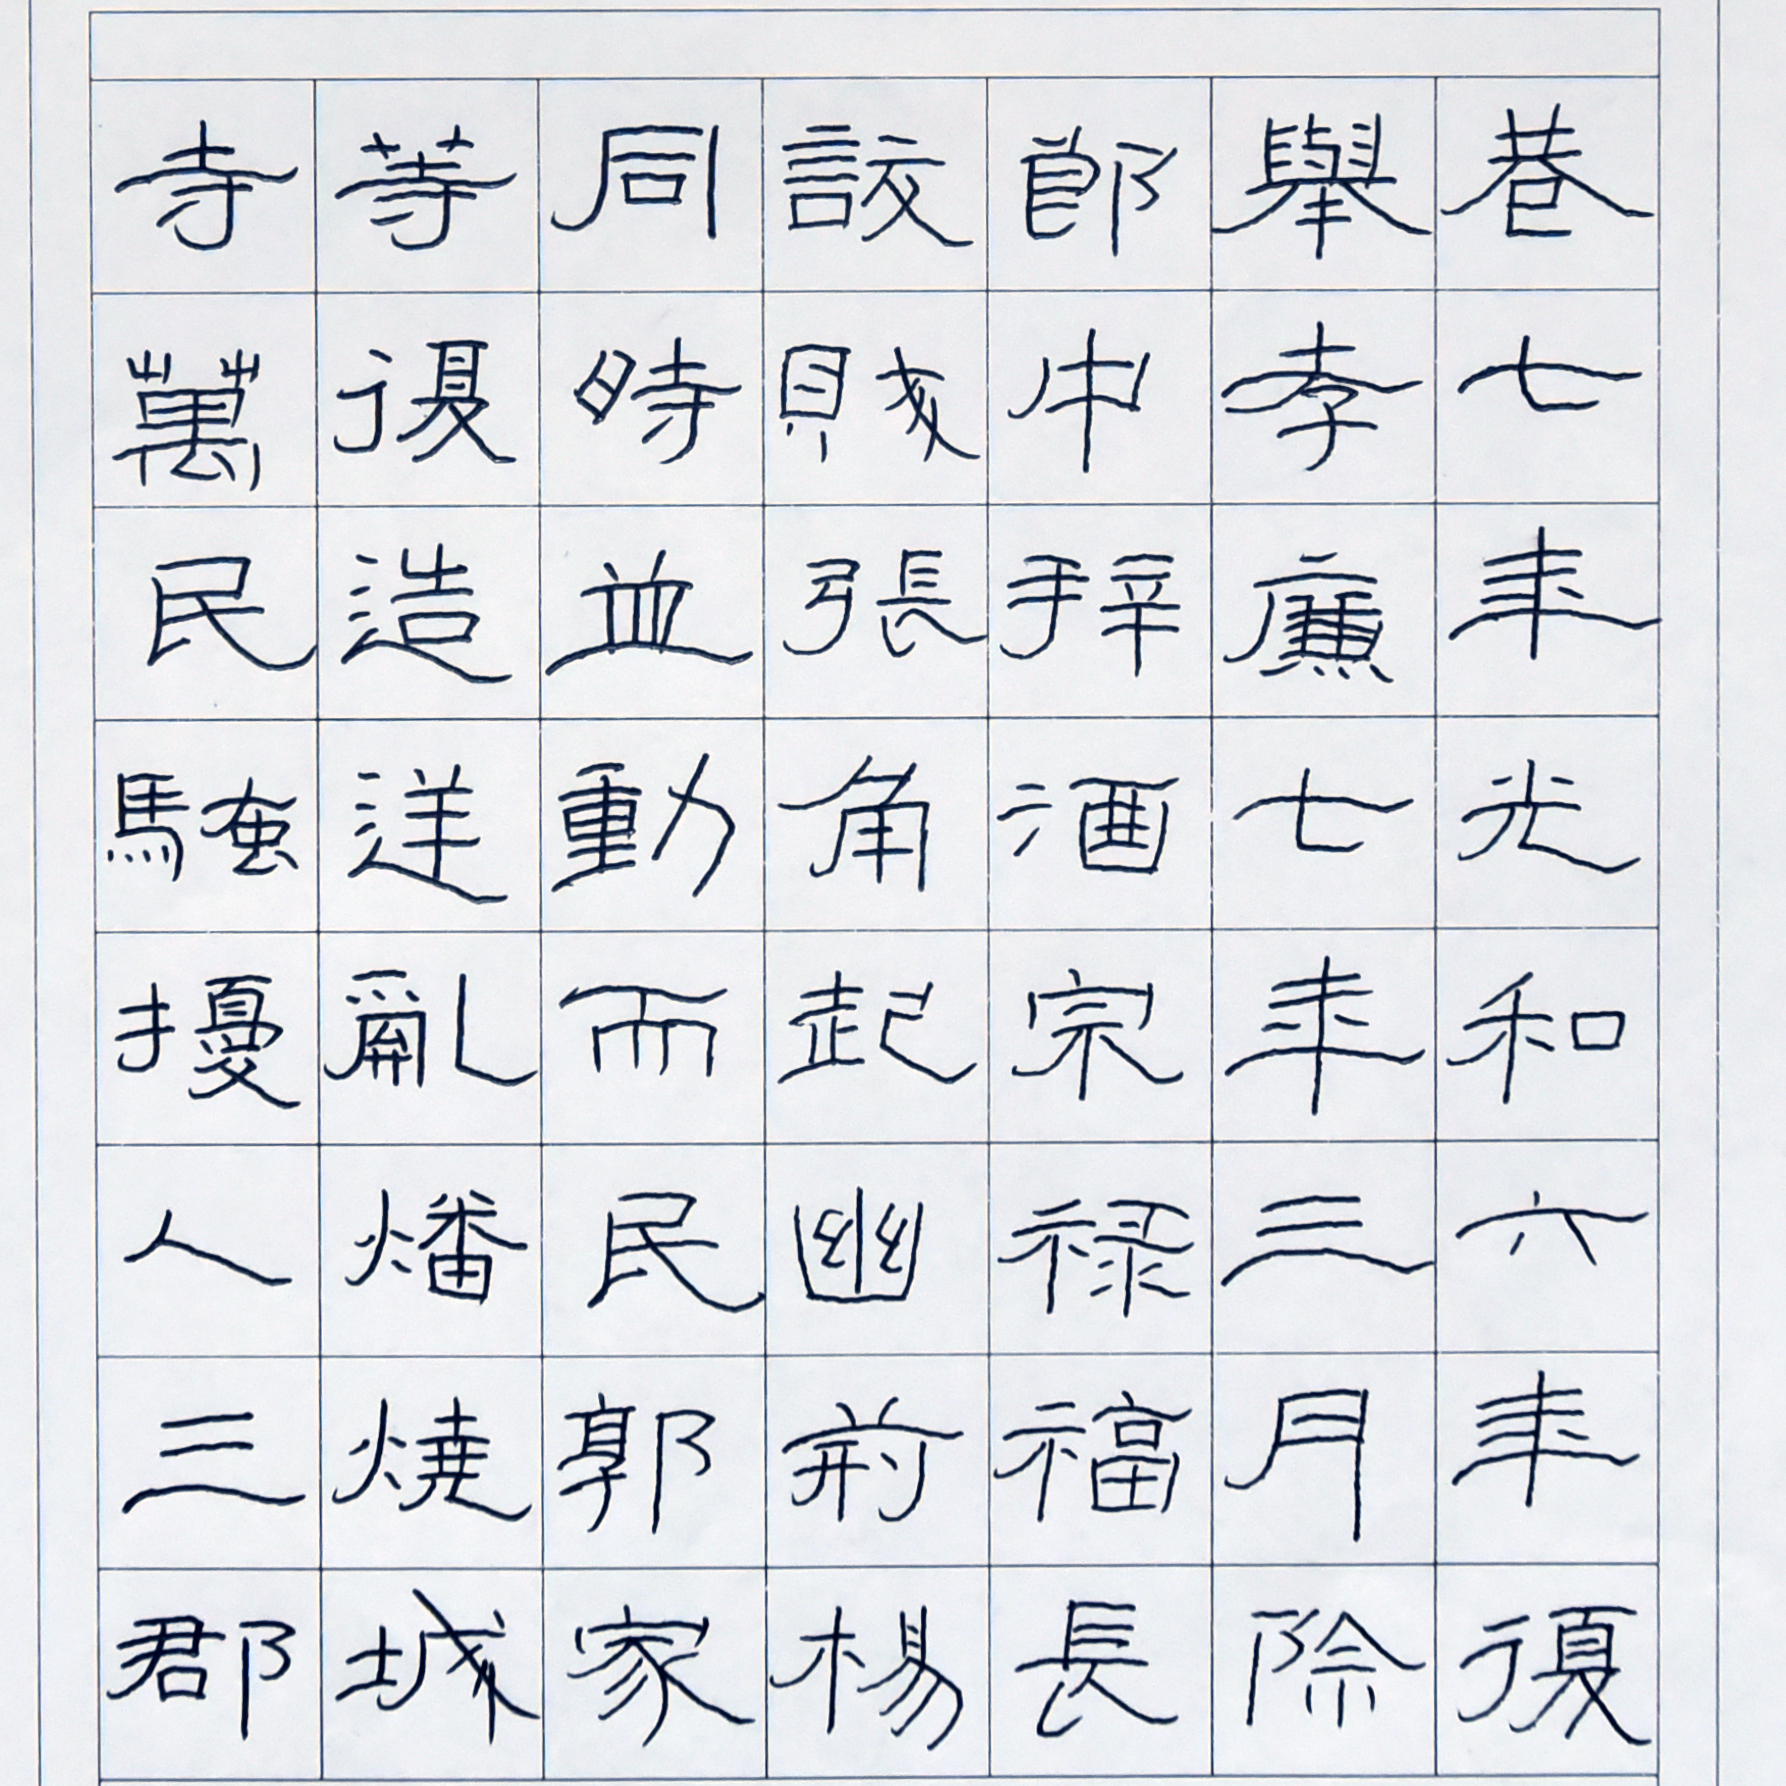 巷七年光和六年復
舉孝廉七年三月除
郎中拜酒宗祿福長
訞賊張角起幽前楊
同時並動而民郭家
等復造逆亂燔燒城
寺萬民騷擾人三郡